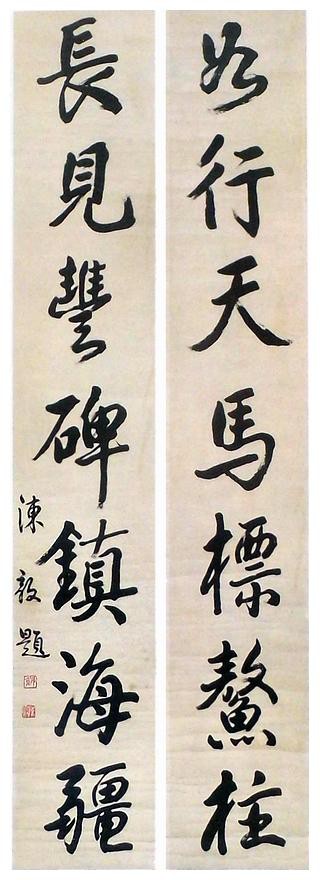 如行天馬標鰲柱
長見豐碑鎮海疆
陳毅題